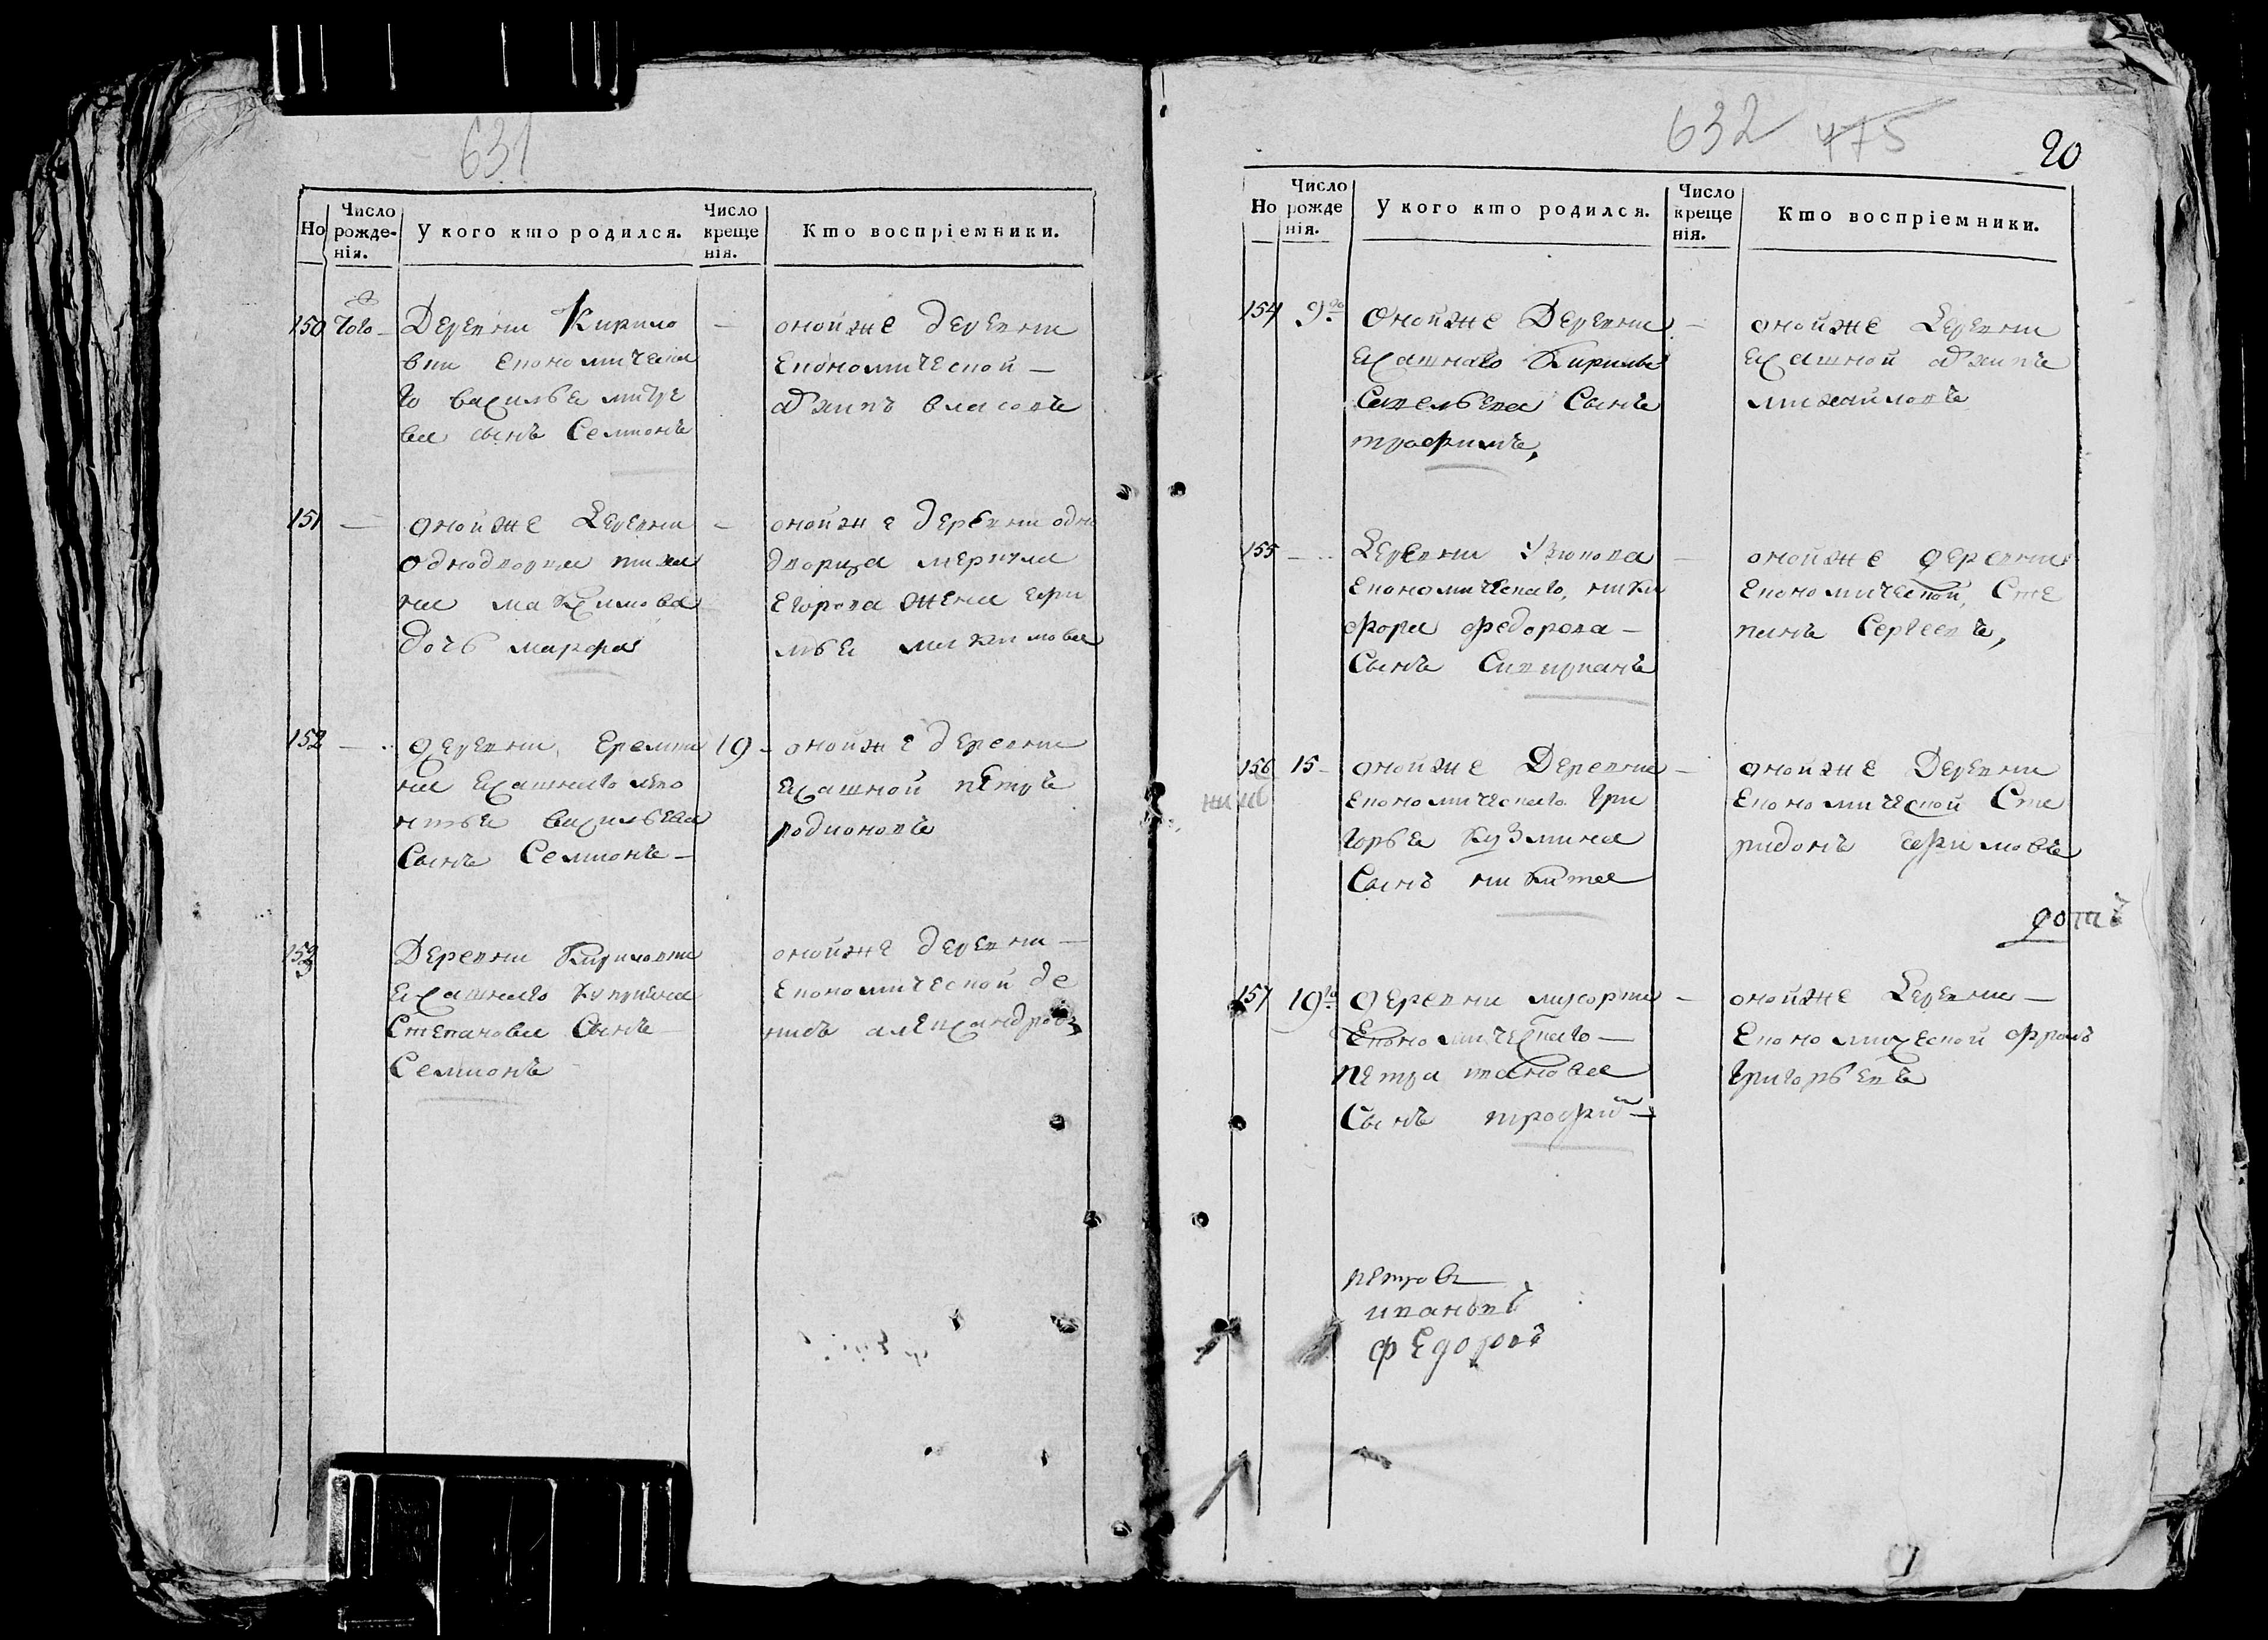 631
Но
Число рожденія.
У кого кто родился.
Число крещенія.
Кто воспріемники.
150
того
Деревни Кирило
вки економическа
го василья митре
ва сынъ Семионъ
онойже деревни
економической
архипъ власовъ
151
онойже деревни
однодворца
максимова
дочь марфа
онойже деревни одно
дворца меркула
егорова жена ефи
мья максимова
152
деревни еремки
на ясашнаго
васильева
сынъ Семионъ
19
онойже деревни
ясашной петръ
родионовъ
153
Деревни Кириловки
ясашнаго куприяна
степанова сынъ
Семионъ
онойже деревни
економической де
нисъ александровъ
632 475
20
Но
Число рожденія.
У кого кто родился.
Число крещенія.
Кто воспріемники.
154
9го
онойже Деревни
ясашнаго Кирилы
Савельева Сынъ
трофимъ,
онойже Деревни
ясашной архипъ
михайловъ
155
Деревни
економическаго, ники
фора федорова
Сынъ
онойже деревни
економической, Сте
панъ Сергеевъ,
156
15
онойже Деревни
економическаго гри
горья кузмина
Сынъ никита
онойже Деревни
економической Спи
ридонъ ефимовъ
157
19го
деревни
економическаго
петра иванова
Сынъ трофим
онойже Деревни
економической фролъ
григорьевъ
петровъ
ивановъ
федоровъ